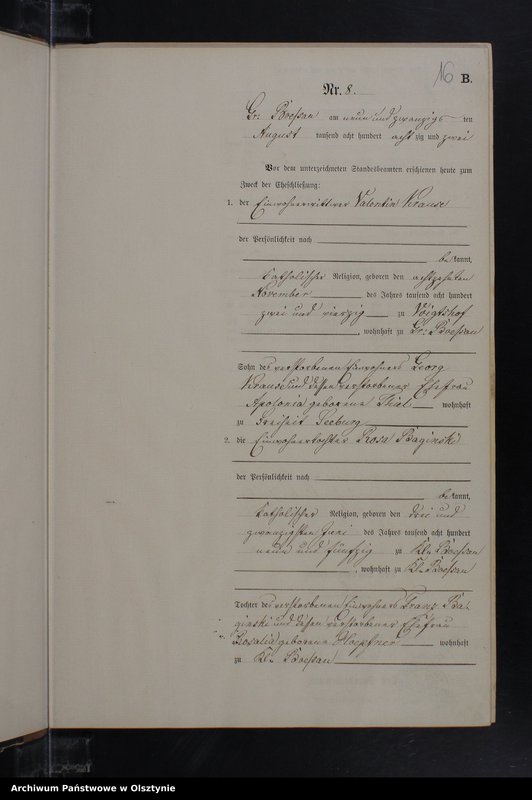 16 B.
Nr. 8.
Gr. Boeßau am neun und zwanzigsten
August tausend acht hundert achtzig und zwei
Vor dem unterzeichneten Standesbeamten erschienen heute zum
Zweck der Eheschließung:
1. der Einwohnerwittwer Valentin Krause
der Persönlichkeit nach
be kannt,
katholischer Religion, geboren den achtzehnten
November des Jahres tausend acht hundert
zwei und vierzig zu Voigtshof
, wohnhaft zu Gr. Boeßau
Sohn des verstorbenen Einwohners Georg
Krause und dessen verstorbener Ehefrau
Apolonia geborene Thiel wohnhaft
zu Freiheit Seeburg
2. die Einwohnertochter Rosa Baginski
der Persönlichkeit nach
be kannt,
katholischer Religion, geboren den drei und
zwanzigsten Juni des Jahres tausend acht hundert
neun und fünfzig zu Kl. Boeßau
, wohnhaft zu Kl. Boeßau
Tochter des verstorbenen Einwohners Franz Ba-
ginski und dessen verstorbener Ehefrau
Rosalia geborene Hoepfner wohnhaft
zu Kl. Boeßau
Archiwum Państwowe w Olsztynie